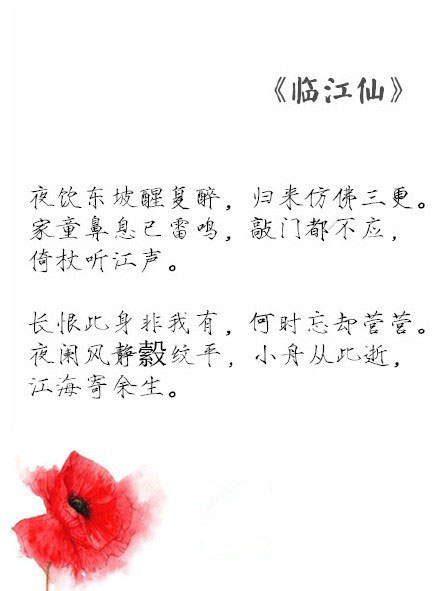 《临江仙》
夜饮东坡醒复醉，归来仿佛三更。
家童鼻息已雷鸣，敲门都不应，
倚杖听江声。
长恨此身非我有，何时忘却营营。
夜阑风静縠纹平，小舟从此逝，
江海寄余生。